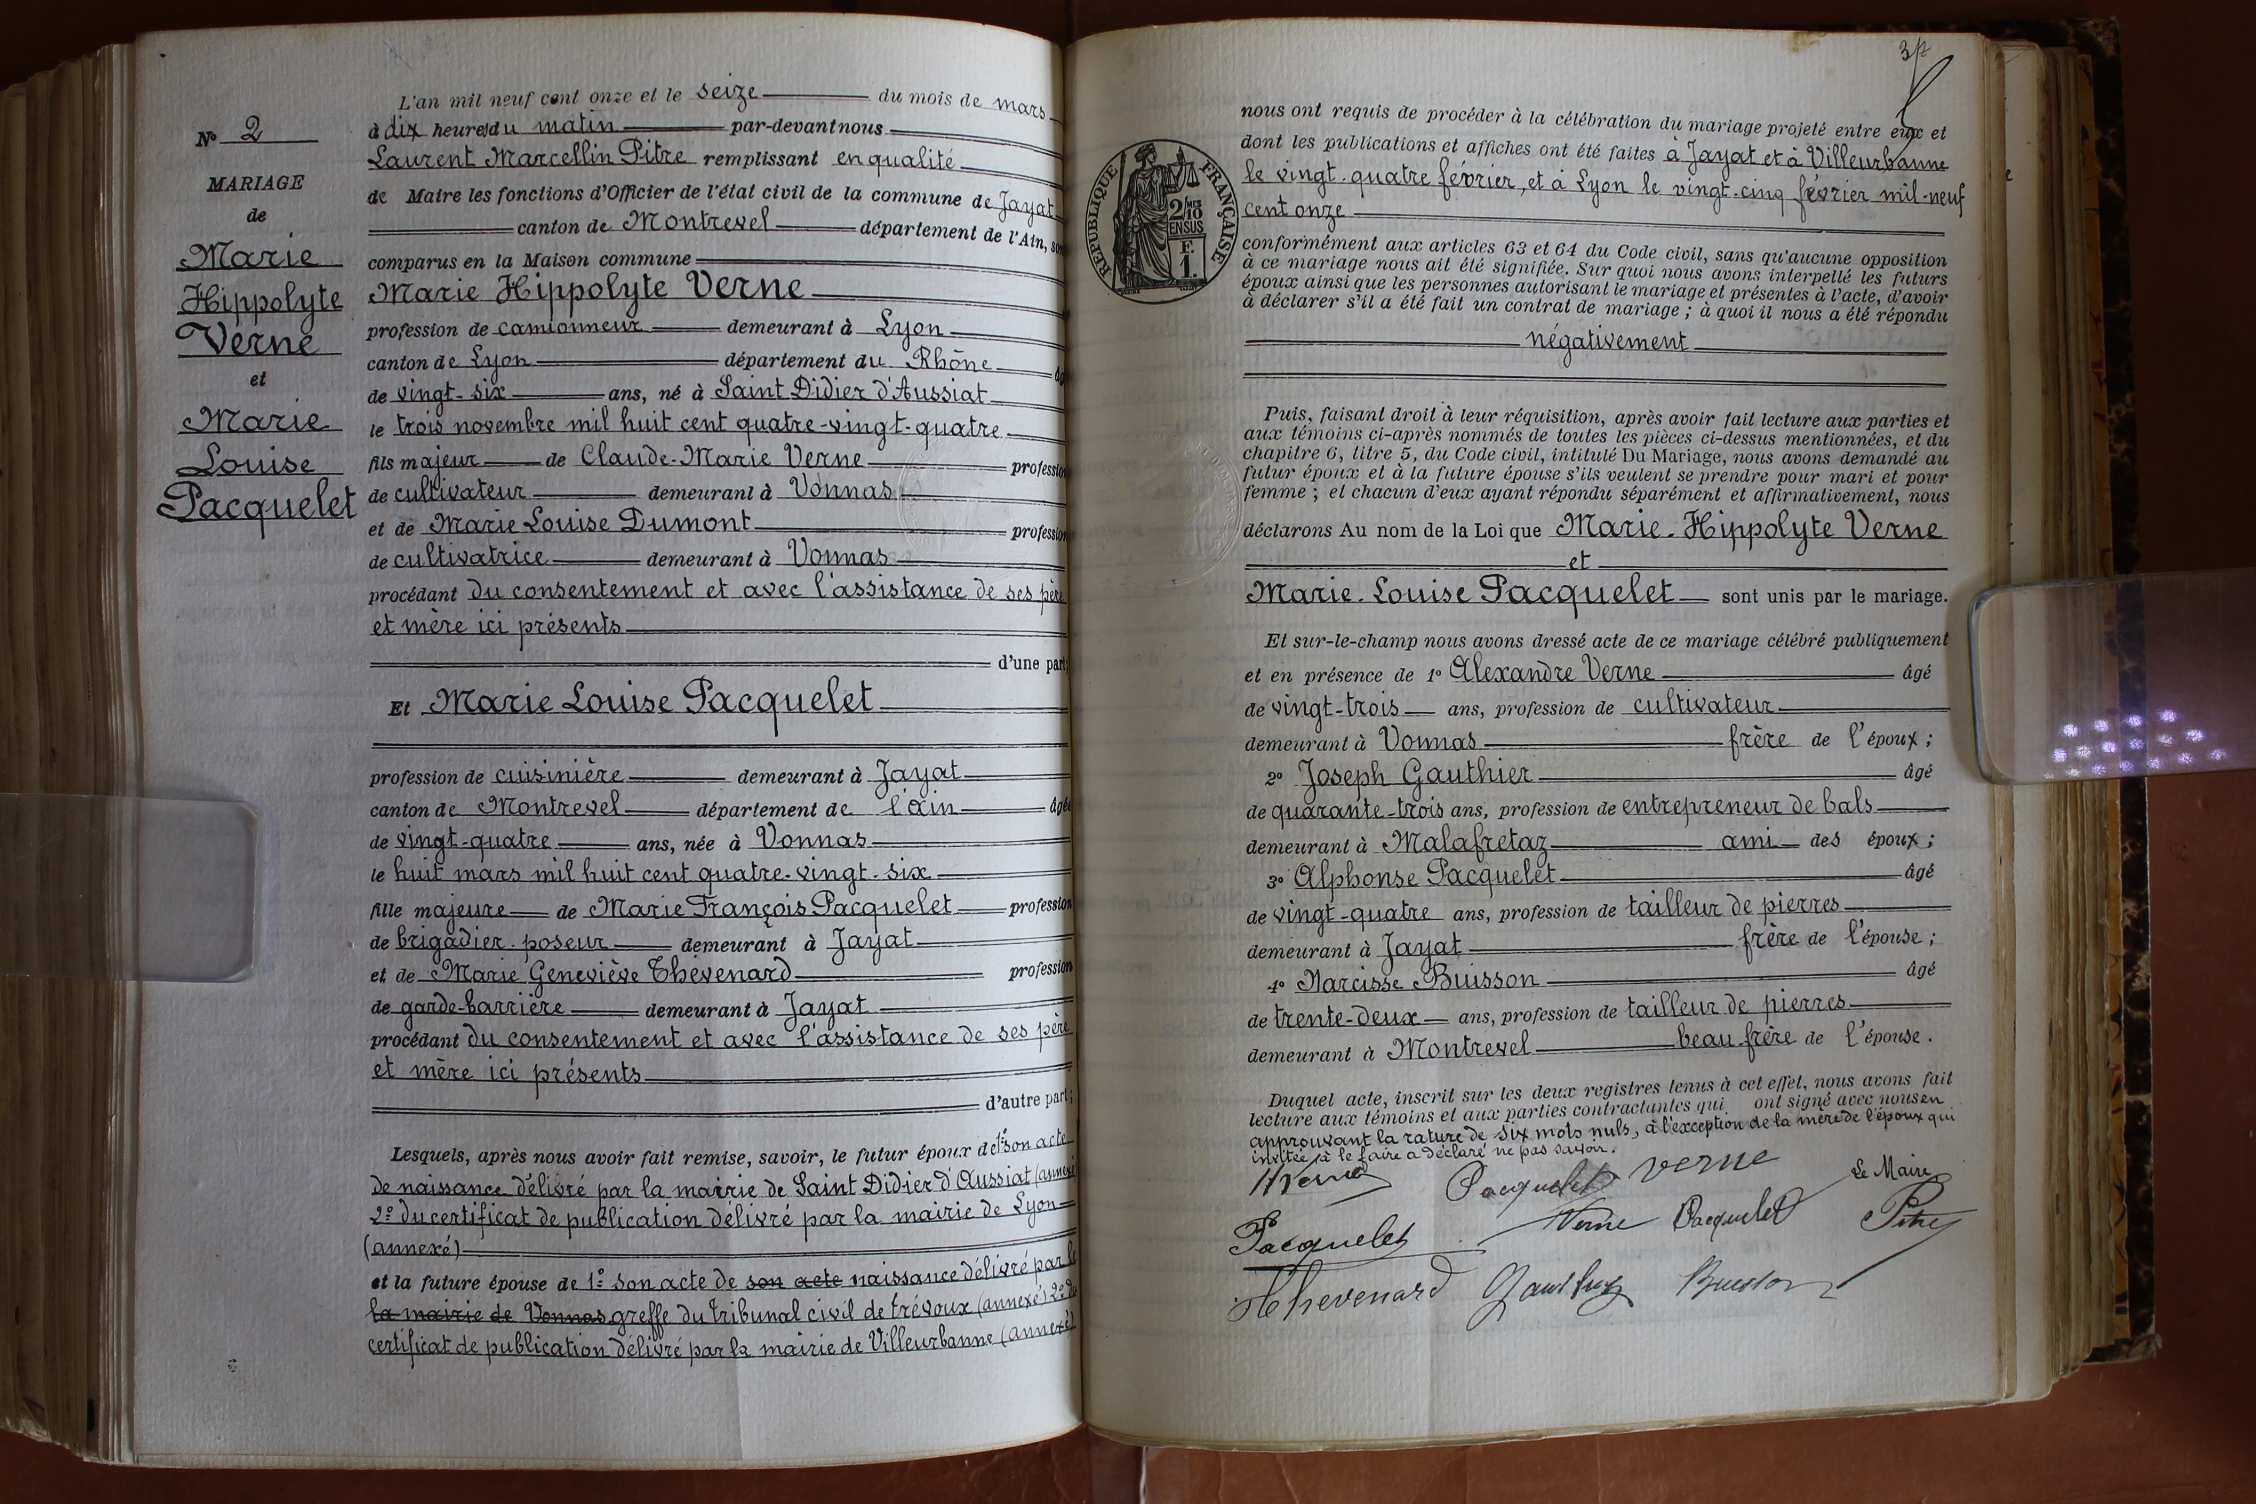 N° 2
MARIAGE
de
Marie
Hippolyte
Verne
et
Marie
Louise
Pacquelet
L'an mil neuf cent onze et le seize du mois de mars
à dix heures du matin par-devant nous
Laurent Marcellin Pitre remplissant en qualité
de Maire les fonctions d'Officier de l'état civil de la commune de Jayat
canton de Montrevel département de l'Ain, sont
comparus en la Maison commune
Marie Hippolyte Verne
profession de camionneur demeurant à Lyon
canton de Lyon département du Rhône âgé
de vingt-six ans, né à Saint Didier d'Aussiat
le trois novembre mil huit cent quatre-vingt-quatre
fils majeur de Claude-Marie Verne profession
de cultivateur demeurant à Vonnas
et de Marie Louise Dumont profession
de cultivatrice demeurant à Vonnas
procédant du consentement et avec l'assistance de ses père
et mère ici présents
d'une part;
Et Marie Louise Pacquelet
profession de cuisinière demeurant à Jayat
canton de Montrevel département de l'ain âgée
de vingt-quatre ans, née à Vonnas
le huit mars mil huit cent quatre-vingt-six
fille majeure de Marie François Pacquelet profession
de brigadier-poseur demeurant à Jayat
et de Marie Geneviève Thévenard profession
de garde-barrière demeurant à Jayat
procédant du consentement et avec l'assistance de ses père
et mère ici présents
d'autre part;
Lesquels, après nous avoir fait remise, savoir, le futur époux de 1° son acte
de naissance délivré par la mairie de Saint Didier d'Aussiat (annexé
2° du certificat de publication délivré par la mairie de Lyon
(annexé)
et la future épouse de 1° son acte de son acte naissance délivré par le
la mairie de Vonnas greffe du tribunal civil de trévoux (annexé) 2° du
certificat de publication délivré par la mairie de Villeurbanne (annexé)
3
REPUBLIQUE FRANÇAISE
2/10 MES
EN SUS
F.
1.
nous ont requis de procéder à la célébration du mariage projeté entre eux et
dont les publications et affiches ont été faites à Jayat et à Villeurbanne
le vingt-quatre février, et à Lyon le vingt-cinq février mil-neuf
cent onze
conformément aux articles 63 et 64 du Code civil, sans qu'aucune opposition
à ce mariage nous ait été signifiée. Sur quoi nous avons interpellé les futurs
époux ainsi que les personnes autorisant le mariage et présentes à l'acte, d'avoir
à déclarer s'il a été fait un contrat de mariage ; à quoi il nous a été répondu
négativement
Puis, faisant droit à leur réquisition, après avoir fait lecture aux parties et
aux témoins ci-après nommés de toutes les pièces ci-dessus mentionnées, et du
chapitre 6, titre 5, du Code civil, intitulé Du Mariage, nous avons demandé au
futur époux et à la future épouse s'ils veulent se prendre pour mari et pour
femme ; et chacun d'eux ayant répondu séparément et affirmativement, nous
déclarons Au nom de la Loi que Marie-Hippolyte Verne
et
Marie-Louise Pacquelet sont unis par le mariage.
Et sur-le-champ nous avons dressé acte de ce mariage célébré publiquement
et en présence de 1° Alexandre Verne âgé
de vingt-trois ans, profession de cultivateur
demeurant à Vonnas frère de l'époux ;
2° Joseph Gauthier âgé
de quarante-trois ans, profession de entrepreneur de bals
demeurant à Malafretaz ami des époux ;
3° Alphonse Pacquelet âgé
de vingt-quatre ans, profession de tailleur de pierres
demeurant à Jayat frère de l'épouse ;
4° Narcisse Buisson âgé
de trente-deux ans, profession de tailleur de pierres
demeurant à Montrevel beau-frère de l'épouse.
Duquel acte, inscrit sur les deux registres tenus à cet effet, nous avons fait
lecture aux témoins et aux parties contractantes qui ont signé avec nous en
approuvant la rature de six mots nuls, à l'exception de la mère de l'époux qui
invitée à le faire a déclaré ne pas savoir.
H Verne Pacquelet Verne Le Maire
Pacquelet Verne Pacquelet Pitre
Thevenard Gauthier Buisson